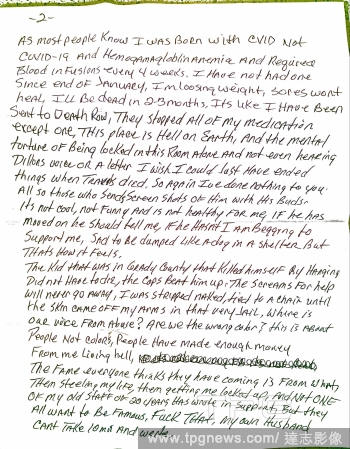 -2-
As most people know I was Born with CVID Not
COVID-19 And Hemogamagloblin Anemia And Required
Blood infusions every 4 weeks. I Have not had one
Since end of January, I'm loosing weight, sores wont
heal, I'll Be dead in 2-3 months, Its like I Have Been
Sent to Death Row, They stopped All of my medication
except one, This place is Hell on Earth, And the mental
torture of Being locked in this Room Alone and not even hearing
Dillons voice or A letter I wish I could Just Have ended
things when Travis died. So Again I've done nothing to you.
All so those who Send Screen Shots of Him with His Buds.
Its not cool, not Funny And is not healthy For me, if he has
moved on he should tell me, if he Hasnt I Am Begging to
Support me, Sad to be dumped like A dog in A shelter. But
Thats How it Feels.
The Kid that was in Grady County that Killed himself By Hanging
Did not Have to die, the Cops Beat him up. The Screams For help
will never go away, I was stripped naked, tied to A chair until
the skin came off my arms in that very Jail, Where is
our voice From Abuse? Are we the wrong color? this is About
People Not colors, People Have made enough money
From me Living hell,
The Fame everyone thinks they have coming is From what,
Then stealing my life, then getting me locked up, And NOT ONE
OF my old Staff of 20 years Has wrote in Support, But they
All want to Be Famous, Fuck That, my own Husband
Cant Take 10md And
www.tpgnews.com/達志影像